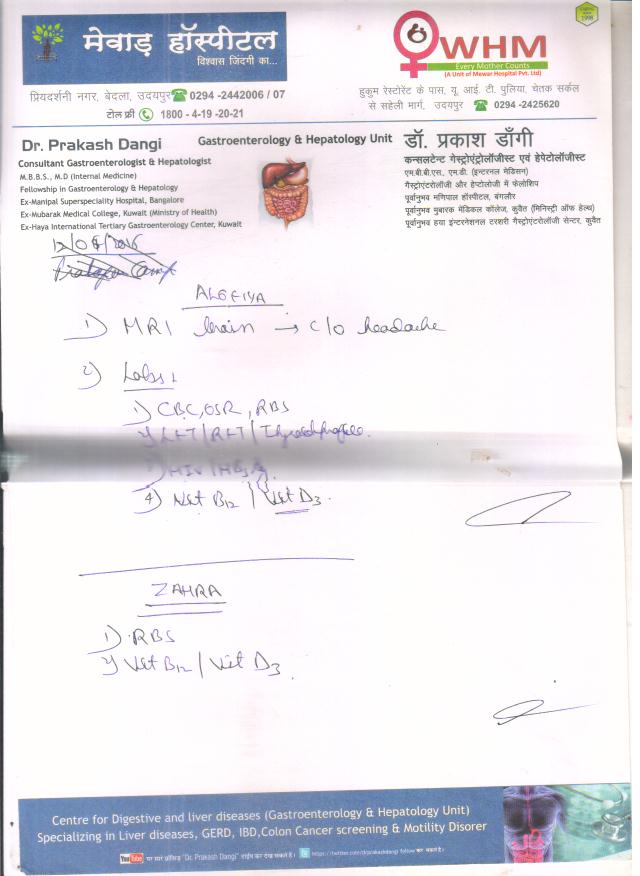 मेवाड़ हॉस्पीटल
विश्वास जिंदगी का...
प्रियदर्शनी नगर, बेदला, उदयपुर 0294 -2442006 / 07
टोल फ्री 1800 - 4-19 -20-21
WHM
Every Mother Counts
(A Unit of Mewar Hospital Pvt. Ltd)
हुकुम रेस्टोरेंट के पास, यू. आई. टी. पुलिया, चेतक सर्कल
से सहेली मार्ग, उदयपुर 0294 -2425620
1998
Dr. Prakash Dangi
Consultant Gastroenterologist & Hepatologist
M.B.B.S., M.D (Internal Medicine)
Fellowship in Gastroenterology & Hepatology
Ex-Manipal Superspeciality Hospital, Bangalore
Ex-Mubarak Medical College, Kuwait (Ministry of Health)
Ex-Haya International Tertiary Gastroenterology Center, Kuwait
Gastroenterology & Hepatology Unit
डॉ. प्रकाश डाँगी
कन्सलटेन्ट गेस्ट्रोएंट्रोलॉजीस्ट एवं हेपेटोलॉजीस्ट
एम.बी.बी.एस., एम.डी. (इन्टरनल मेडिसन)
गैस्ट्रोएंटरोलॉजी और हेप्टोलोजी में फेलोशिप
पूर्वानुभव मणिपाल हॉस्पिटल, बंगलौर
पूर्वानुभव मुबारक मेडिकल कॉलेज, कुवैत (मिनिस्ट्री ऑफ हेल्थ)
पूर्वानुभव हया इन्टरनेशनल टरशरी गैस्ट्रोएंटरोलॉजी सेन्टर, कुवैत
1) MRI brain → C/O headache
2) Labs:
1) CBC, ESR, RBS
2) LFT/RFT/Thyroid profile.
3) HIV/HBsAg
4) Vit B12 / Vit D3.
ZAHRA
1) RBS
2) Vit B12 / Vit D3.
Centre for Digestive and liver diseases (Gastroenterology & Hepatology Unit)
Specializing in Liver diseases, GERD, IBD,Colon Cancer screening & Motility Disorer
YouTube पर सर्च "Dr. Prakash Dangi"